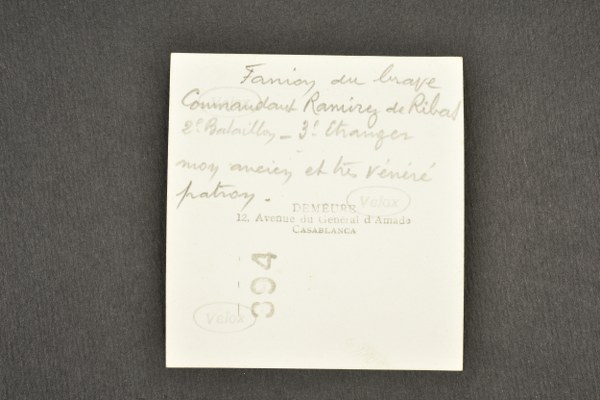 Fanion du brave
Commandant Ramirez de Ribas
2e. Bataillon - 3e. Etranger
mon ancien et très vénéré
patron.
Velox
DEMEURE
12, Avenue du General d'Amade
CASABLANCA
394
Velox